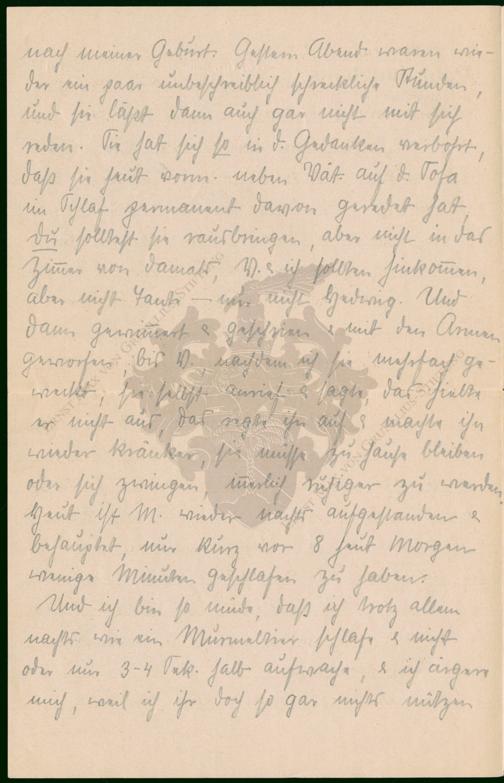 nach meiner Geburt. Gestern Abend waren wie-
der ein paar unbeschreiblich schreckliche Stunden,
und sie läßt dann auch gar nicht mit sich
reden. Sie hat sich so in d. Gedanken verbohrt,
daß sie heut vorm. neben Vat. auf d. Sofa
im Schlaf permanent davon geredet hat,
du solltest sie rausbringen, aber nicht in das
Zimmer von damals, V. & ich sollten hinkommen,
aber nicht Tante – nur nicht Hedwig. Und
dann gewimmert & geschrien & mit den Armen
geworfen, bis V., nachdem ich sie mehrfach ge-
weckt, sie selbst anrief & sagte, das hielte
er nicht aus, das regte ihn auf & machte ihn
wieder kränker, sie müsse zu Hause bleiben
oder sich zwingen innerlich ruhiger zu werden.
Heut ist M. wieder nachts aufgestanden &
behauptet, nur kurz vor 8 heut Morgen
wenige Minuten geschlafen zu haben.
Und ich bin so müde, daß ich trotz allem
nachts wie ein Murmeltier schlafe & nicht
oder nur 3-4 Sek. halb aufwache, & ich ärgere
mich, weil ich ihr doch so gar nichts nützen